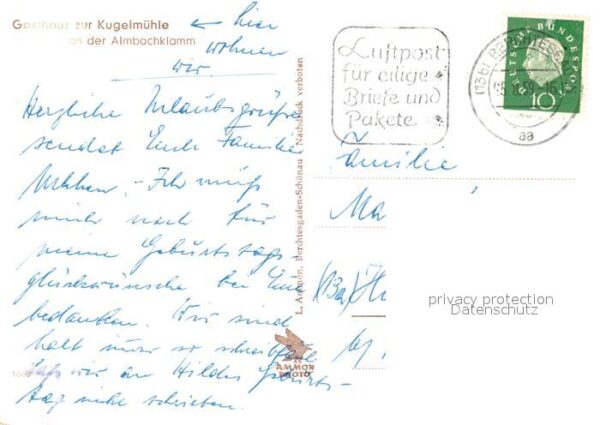 Gasthaus zur Kugelmühle
an der Almbachklamm
← hier
wohnen
wir.
Herzliche Urlaubsgrüße
sendet Euch Familie
Ich muß
mich noch für
meine Geburtstags-
glückwünsche bei Euch
bedanken. Wir sind
halt immer so schreibfaul
daß wir an Hildes Geburts-
tag nicht schrieben.
L. Ammon, Berchtesgaden-Schönau / Nachdruck verboten
AMMON
PHOTO
Luftpost
für eilige
Briefe und
Pakete
DEUTSCHE BUNDESPOST
10
(13b) BERCHTESG
aa
Familie
Ma
privacy protection
Datenschutz